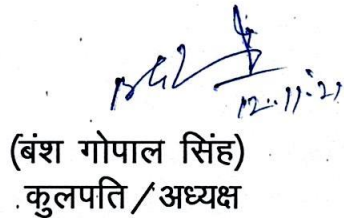 12.11.21
(बंश गोपाल सिंह)
कुलपति / अध्यक्ष